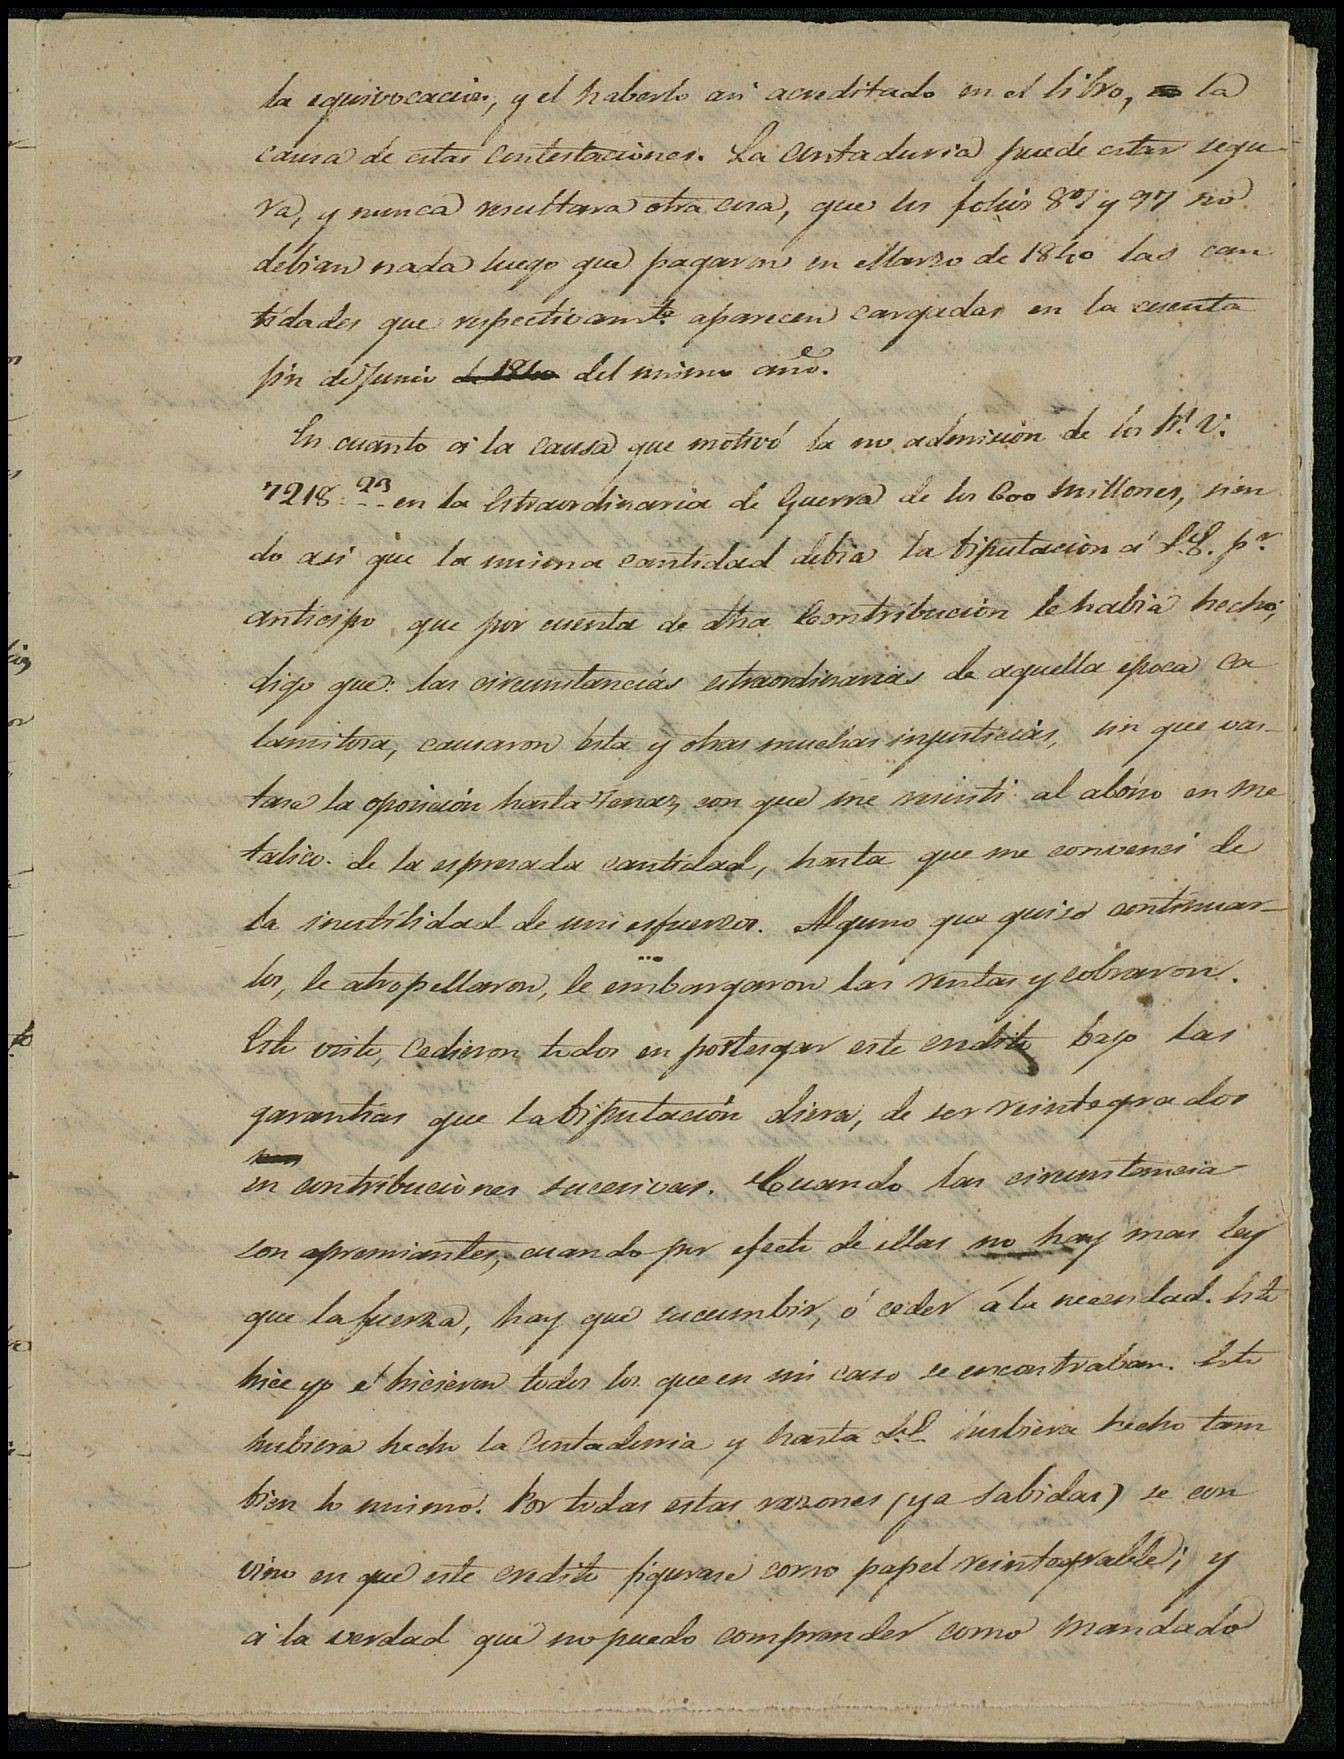 la equivocacion, y el haberlo asi acreditado en el libro, es la
causa de estas contestaciones. La Contaduria puede estar segu-
ra, y nunca resultara otra cosa, que los folios 87 y 97 no
debian nada luego que pagaron en Marzo de 1840 las can
tidades que respectivamte. aparecen cargadas en la cuenta
fin de Junio de 1840 del mismo año.
En cuanto á la causa que motivó la no admision de los Rs. Vn.
7218..23 en la Estraordinaria de Guerra de los 600 millones, sien
do asi que la misma cantidad debia la Diputacion á S.E. pr.
anticipo que por cuenta de dha Contribucion le habia hecho;
digo que: las circunstancias estraordinarias de aquella epoca ca
lamitosa, causaron esta y otras muchas injusticias, sin que vas-
tase la oposicion hasta tenaz, con que me resisti al abono en me
talico de la espresada cantidad, hasta que me convenci de
la inutilidad de mis esfuerzos. Alguno que quiso continuar-
los, le atropellaron, le embargaron las rentas y cobraron.
Esto visto, cedieron todos en postergar este credito bajo las
garantias que la Diputacion diera, de ser reintegrados
en contribuciones sucesivas. Cuando las circunstancia
son apremiantes, cuando por efecto de ellas no hay mas ley
que la fuerza, hay que sucumbir, ó ceder á la necesidad. Esto
hice yo é hicieron todos los que en mi caso se encontraban. Esto
hubiera hecho la Contaduria y hasta S.E. hubiera hecho tam
bien lo mismo. Por todas estas razones (ya sabidas) se con
vino en que este credito figurase como papel reintegrable; y
á la verdad que no puedo comprender como mandado